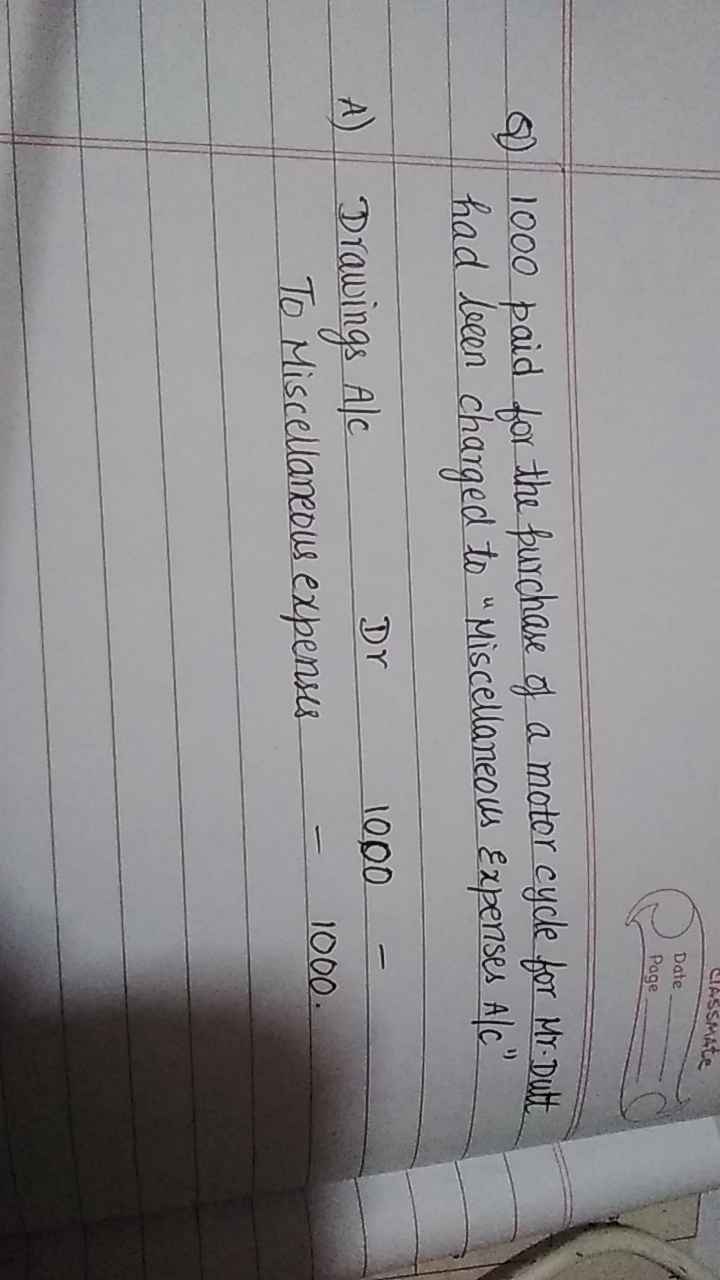 classmate
Date
Page
Q) 1000 paid for the purchase of a motor cycle for Mr. Dutt
had been charged to "Miscellaneous Expenses A/c"
A) Drawings A/c Dr 1000 -
To Miscellaneous expenses - 1000.